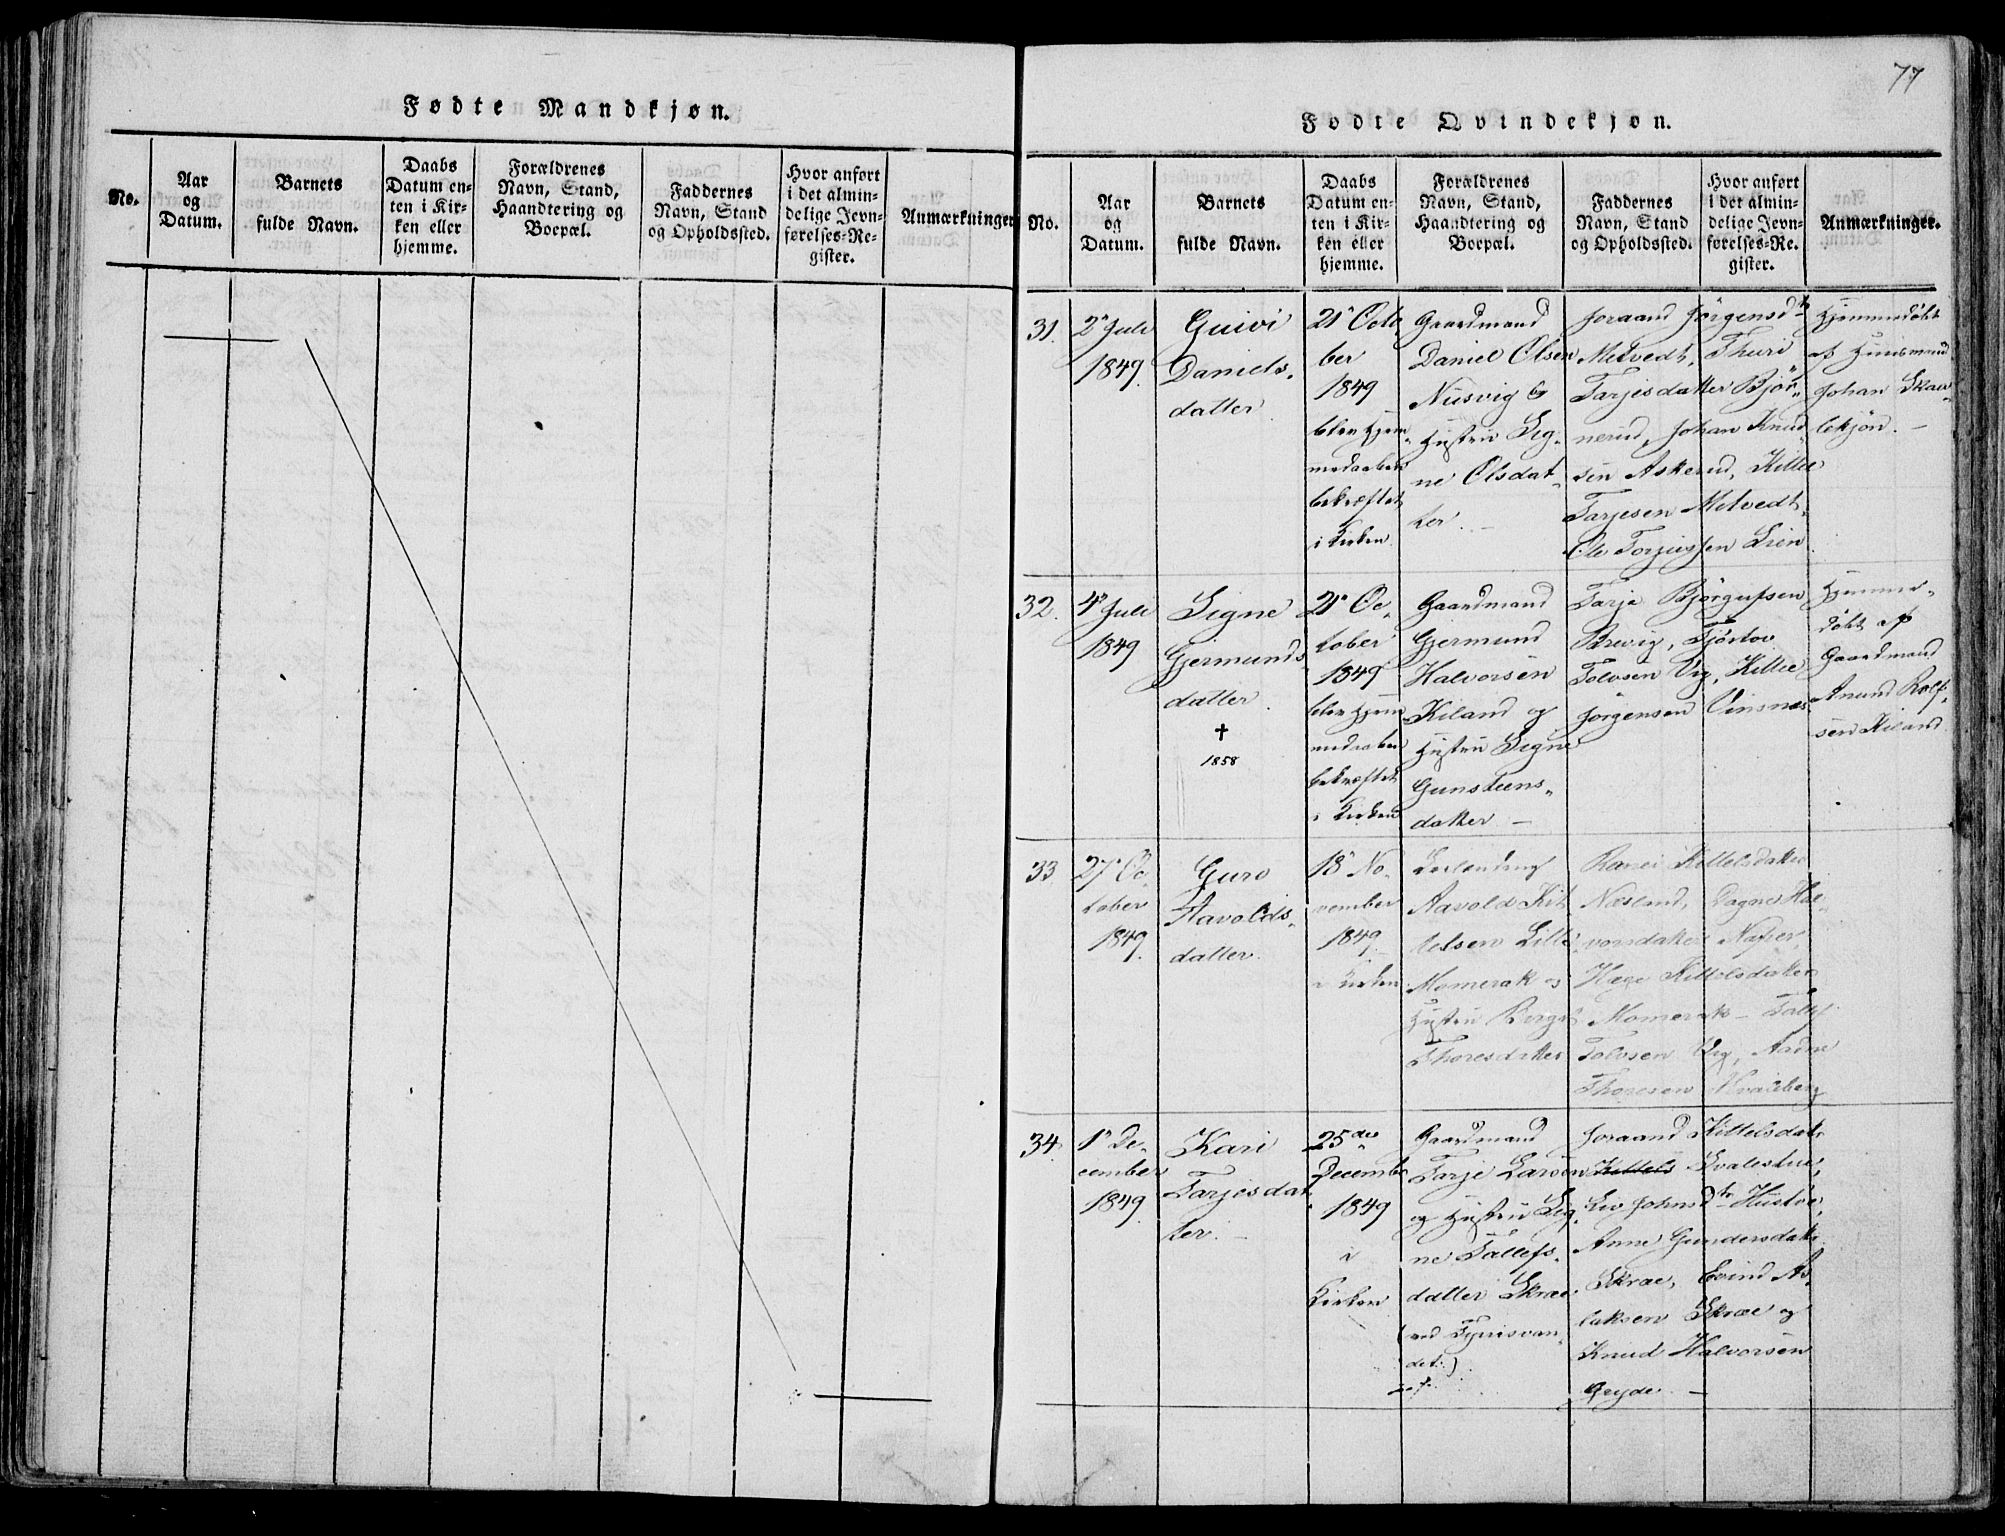 77
Fødte Mandkjøn.
No.
Aar
og
Datum.
Barnets
fulde Navn.
Daabs
Datum en-
ten i Kir-
ken eller
hjemme.
Forældrenes
Navn, Stand,
Haandtering og
Boepæl.
Faddernes
Navn, Stand
og Opholdssted.
Hvor anført
i det almin-
delige Jevn-
førelses-Re-
gister.
Anmærkninger
Fødte Qvindekjøn.
No.
Aar
og
Datum.
Barnets
fulde Navn.
Daabs
Datum en-
ten i Kir-
ken eller
hjemme.
Forældrenes
Navn, Stand,
Haandtering og
Boepæl.
Faddernes
Navn, Stand
og Opholdssted.
Hvor anført
i det almin-
delige Jevn-
førelses-Re-
gister.
Anmærkninger.
31.
2 Juli
1849.
Guivi
Daniels-
datter.
21 Octo
ber
1849
blev Hjem-
medaaben
bekræftet
i Kirken
Gaardmand
Daniel Olsen
Nusvig og
Hustru Sig-
ne Olsdat-
ter. -
Joraand Jörgensdtr
Metvedt, Thuri
Tarjesdatter Bjør-
nerud, Johan Knud-
sen Askerud, Kittel
Tarjesen Metvedt,
Ole Torjussen Lien
Hjemmedöbt
af Huusmand
Johan
32.
4 Juli
1849
Signe
Gjermunds-
datter.
†
1858
21 Oc-
tober
1849
blev Hjem
medaaben
bekræftet
i Kirken
Gaardmand
Gjermund
Halvorsen
Kiland og
Hustru Signe
Gunsteens-
datter -
Tarje Bjørgufsen
Brevig,
Tolvsen Vig, Kittel
Jørgensen Vinsnes
Hjemme-
döbt af
Gaardmand
Anund Rolf-
sen Kiland
33.
27 Oc-
tober
1849.
Guro
Aavolds-
datter.
18 No-
vember
1849.
i Kirken
Aavold Kit
telsen Lille
Momerak og
Hustru Berget
Thoresdatter
Kittelsdatter
Næsland, Dagne Hal-
vorsdatter
Hæge Kittelsdatter
Momerak -
Tolvsen Vig,
Thoresen
34.
1 De-
cember
1849.
Kari
Tarjesdat-
ter. -
25de
Decembr
1849
i
Kirken
Gaardmand
Tarje Larsen
og Hustru Sig-
ne Tallefs-
datter Skræe
(ved
det.)
Joraand Kittelsdatr
Kittels Svalestue,
Liv Johnsdtr Hustve,
Anne Gundersdatr
Skræe, Eivind As-
laksen Skræe og
Knud Halvorsen